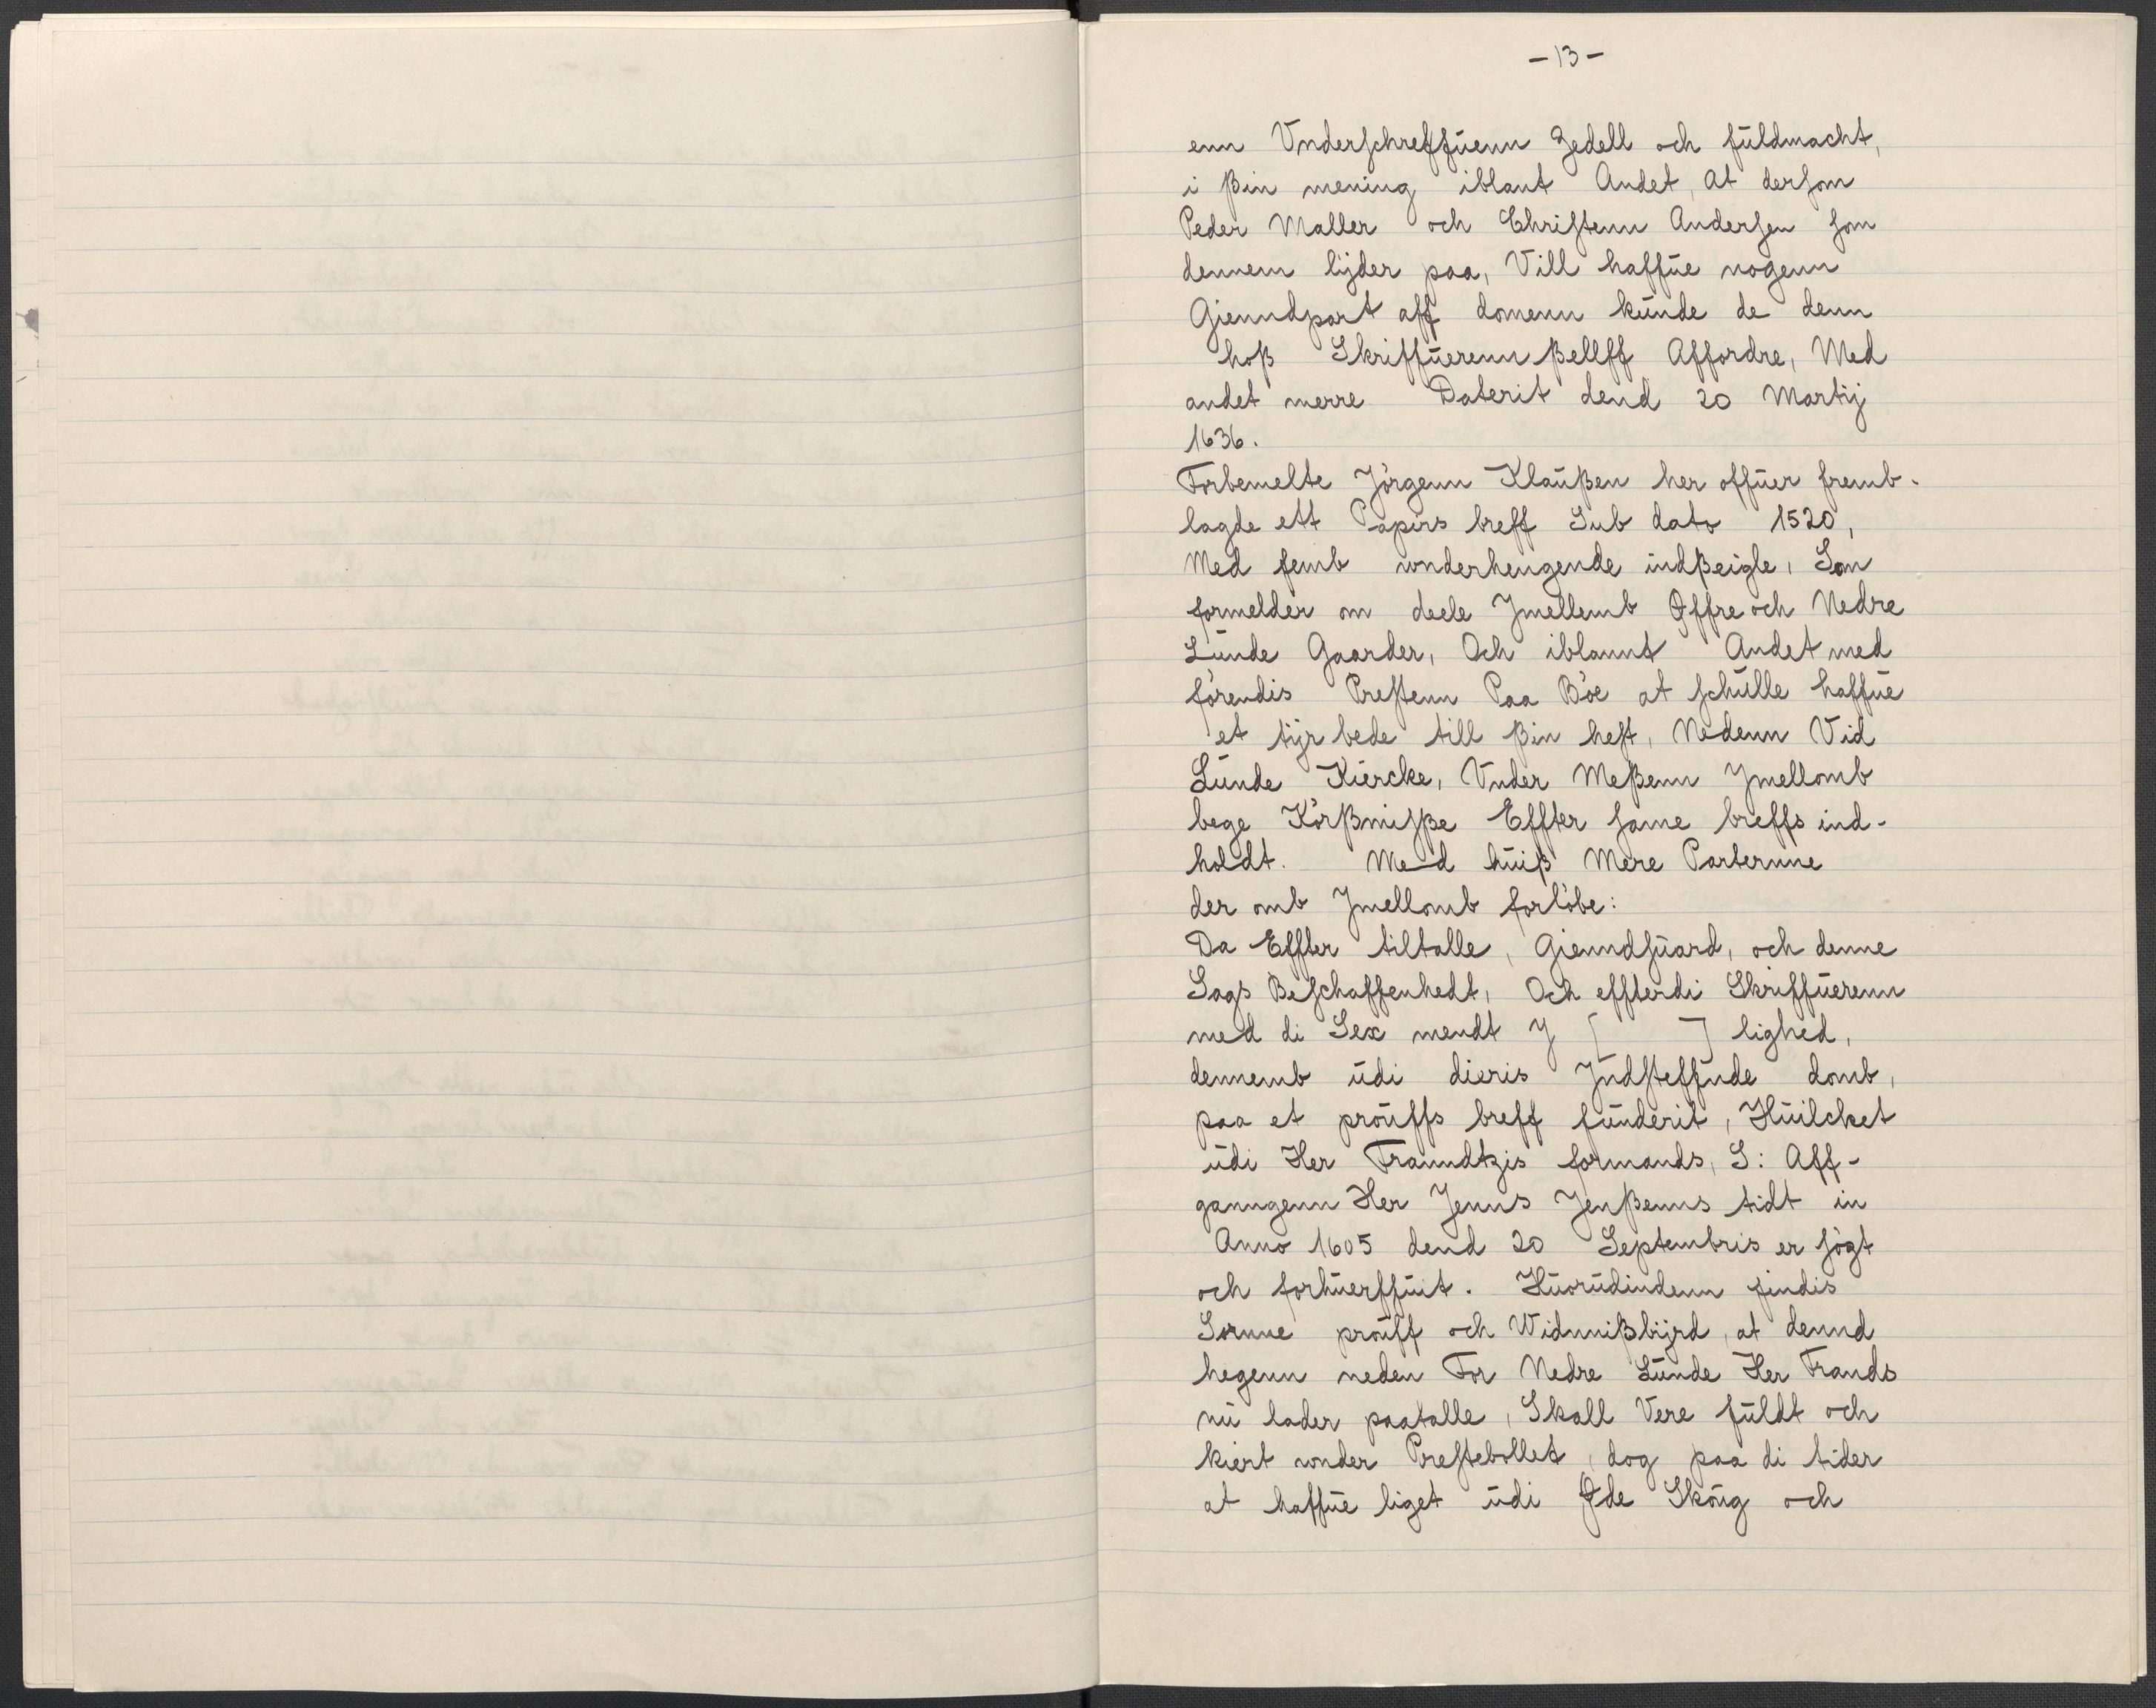 - 13 -
enn Vnderschreffuenn Zedell och fuldmacht,
i ßin mening iblant Andet, at dersom
Peder Maller och Christenn Andersen som
dennem lÿder paa, Vill haffue nogenn
Gienndpart aff domenn kunde de denn
hoß Skriffuerenn ßellff Affordre, Med
andet merre Daterit dend 20 Martÿ
1636.
Forbemelte Jörgenn Klaußen her offuer fremb-
lagde ett Papirs breff Sub dato 1520,
Med femb underhengende indßeigle, Som
formelder om deele Jmellemb Øffre och Nedre
Lunde Gaarder, Och iblannt Andet med
förendis Prestenn Paa Böe at schulle haffue
et tÿr bede till ßin hest, Nedenn Vid
Lunde Kiercke, Vnder Meßenn Jmellomb
bege Körßmisße Effter same breffs ind-
holdt. Med huiß Mere Parternne
der omb Jmellomb forlöbe:
Da Effter tiltalle, Gienndsuard, och denne
Sags Beschaffenhedt, Och effterdi Skriffuerenn
med di Sex mendt J [ ] lighed,
dennemb udi dieris Jndsteffnde domb,
paa et prouffs breff funderit, Huilcket
udi Her Franndtzis formands, S: Aff-
ganngenn Her Jenns Jenßenns tidt in
Anno 1605 dend 20 Septembris er sögt
och forhuerffuit. Huorudindenn findis
Somme prouff och Widnnißbÿrd, at dennd
hegenn neden For Nedre Lunde Her Frands
nu lader paatalle, Skall Vere fuldt och
kiert under Prestebollet, dog paa di tider
at haffue liget udi Øde Skoug och